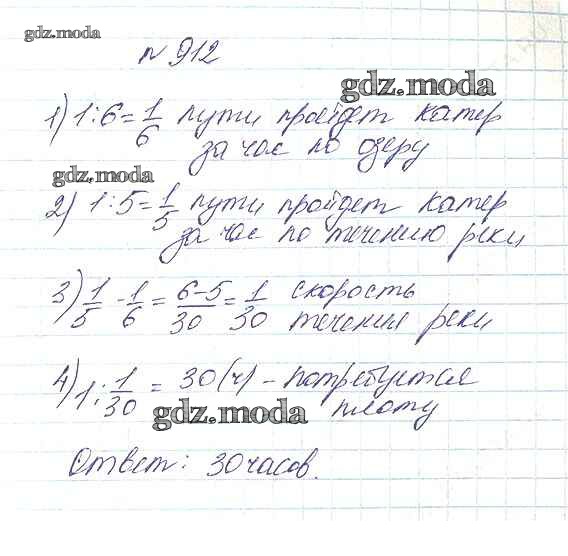 gdz.moda
№ 912
gdz.moda
1) 1:6=1/6 пути пройдет катер
за час по озеру
gdz.moda
2) 1:5=1/5 пути пройдет катер
за час по течению реки
3) 1/5 - 1/6 = 6-5/30 = 1/30 скорость
течения реки
4) 1:1/30 = 30(ч) - потребуется
плоту
gdz.moda
Ответ: 30 часов.